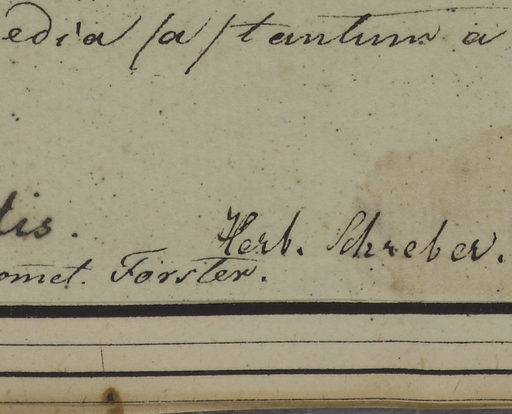 edia /a/ tantum a
tis.
Herb. Schreber.
omet. Forster.